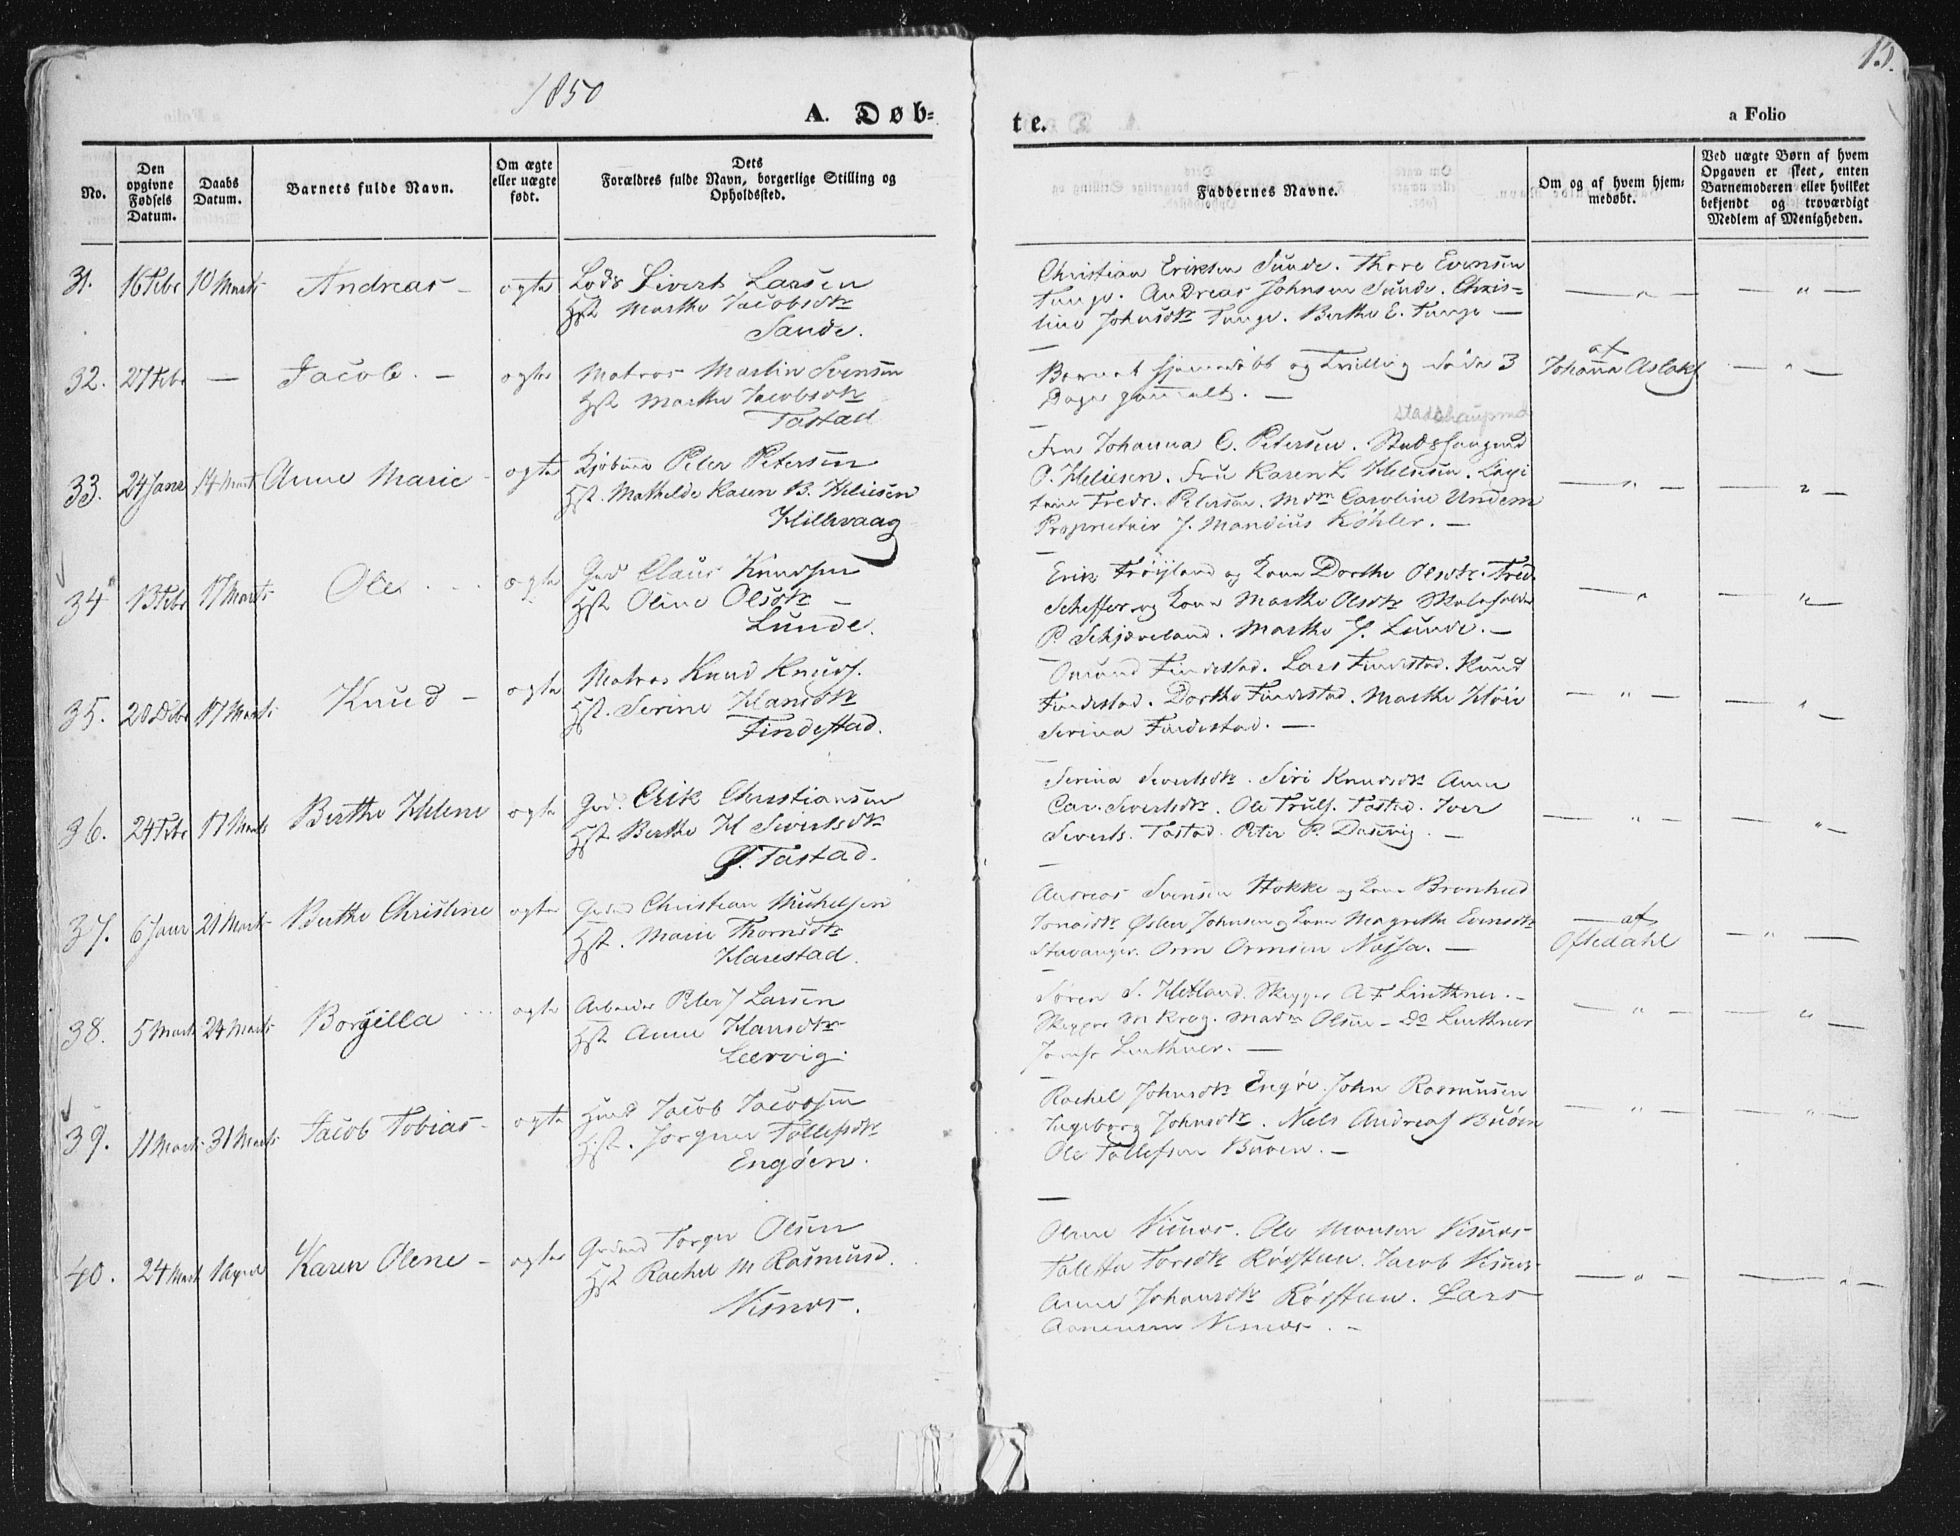 1850
15.
A. Døb-
te.
a Folio
No.
Den opgivne Fødsels Datum.
Daabs Datum.
Barnets fulde Navn.
Om ægte eller uægte født.
Dets Forældres fulde Navn, borgerlige Stilling og Opholdssted.
Faddernes Navne.
Om og af hvem hjem-medøbt.
Ved uægte Børn af hvem Opgaven er skeet, enten Barnemoderen eller hvilket bekjendt og troværdigt Medlem af Menigheden.
31. 16 Febr 10 Marts Andreas - ægte
Lods Sivert Larsen
Hst. Marthe Jacobsdtr
Sande.
Christian Eriksen Sunde. Thore Evensen
Tunge. Andreas Johnsen Sunde. Chris-
tine Johnsdtr Tunge. Berthe E. Tunge —
32. 27 Febr — Jacob. - ægte
Matros Martin Svensen
Hst. Marthe Jacobsdtr
Tastad
Barnet hjemmedøbt og Tvilling døde 3
Dage gammelt. —
af
Johanna Aslaks
33. 24 Janr 14 Marts Anne Marie - ægte
Kjøbmd Peter Petersen
Hst. Mathilde Karen B. Helliesen
Hillevaag
Stadshauptmd
Fru Johanna C. Petersen. Stadshauptmd
P. Helliesen. Fru Karen L. Helliesen.
Fredr. Petersen. Mdm Caroline Undem
Proprietair J. Mandius Köhler. —
34 13 Febr 17 Marts Ole ægte
Gmd Claus Knudsen
Hst. Oline Olsdtr —
Lunde.
Erik Frøyland og Kone Dorthe Olsdtr. Fred
Scheffer og Kone Marthe Olsdtr Skoleholder
P. Schjæveland. Marthe J. Lunde. —
35. 20 Debr 17 Marts Knud - ægte
Matros Knud Knuds.
Hst. Serine Hansdtr
Findestad.
Omund Findestad. Lars Findestad. Knud
Findestad. Dorthe Findestad. Marthe
Serina Findestad. —
36. 24 Febr 17 Marts Berthe Helene ægte
Gmd. Erik Christiansen
Hst. Berthe H Sivertsdtr
Ø. Tastad.
Serina Sivertsdtr. Siri Knudsdtr Anne
Car. Sivertsdtr. Ole Truls. Tastad. Iver
Siverts. Tastad. Peter P. Dusevig. —
37. 6 Janr 21 Marts Berthe Christine ægte
Grdmd Christian Michelsen
Hst. Maren Thorsdtr
Harestad.
Andreas Svensen Hokke og Kone Bronhild
Jonasdtr Østen Johnsen og Kone Magrethe Evensdtr
Stavanger. Orm Ormsen —
af
Oftedahl
38. 5 Marts 24 Marts Borgilla ægte
Arbeider Peter J Larsen
Hst Anne Hansdtr
Leervig.
Søren S. Hetland. Skipper A F Linthner. —
Skipper M Krog. Madm Olsen - Do Linthner
Jomfr Linthner. —
39. 11 Marts 31 Marts Jacob Tobias - ægte
Huusmd Jacob Jacobsen
Hst. Jorgine Tollefsdtr
Engøen.
Rachel Johnsdtr Engøe. John Rasmussen
Ingeborg Johnsdtr. Niels Andreas Buøen
Ole Tollefsen Buøen. —
40. 24 Marts 1 April Karen Olene - ægte
Grdmd Torger Olsen
Hst Rachel M Rasmusd.
Visnæs.
Olene Visnæs. Ole Monsen Visnæs
Taletta Torsdtr Rødstun. Jacob Visnæs
Anne Johansdtr Rødstun. Lars
Asmunsen Visnæs. —